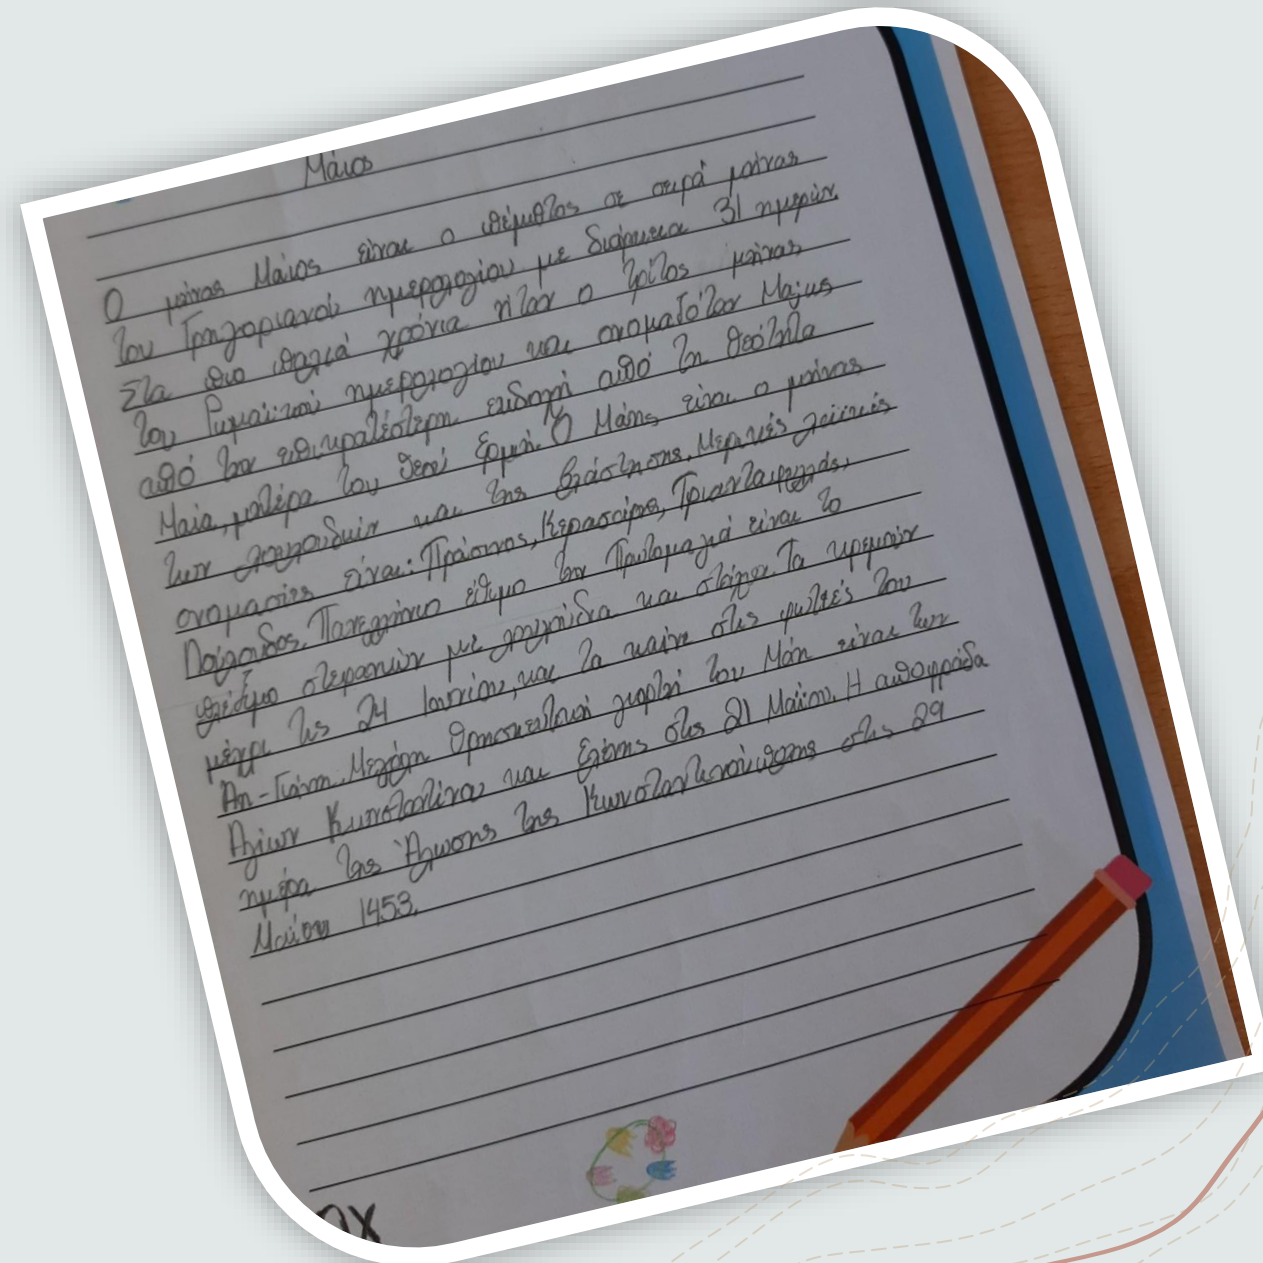 Μάιος
Ο μήνας Μάιος είναι ο πέμπτος σε σειρά μήνας
του Γρηγοριανού ημερολογίου με διάρκεια 31 ημερών.
Στα πιο παλιά χρόνια ήταν ο τρίτος μήνας
του Ρωμαϊκού ημερολογίου και ονοματόταν Μajus
από την επικρατέστερη εκδοχή από τη θεότητα
Μαία, μητέρα του θεού Ερμή. Ο Μάης είναι ο μήνας
των λουλουδιών και της βλάστησης. Μερικές λαϊκές
ονομασίες είναι: Πράσινος, Κερασάρης, Τριανταφυλλάς,
Λούλουδος. Πανελλήνιο έθιμο την Πρωτομαγιά είναι το
πλέξιμο στεφανιών με λουλούδια και στάχυα. Τα κρεμούν
μέχρι τις 24 Ιουνίου, και τα καίνε στις φωτιές του
Αη-Γιάννη. Μεγάλη θρησκευτική γιορτή του Μάη είναι των
Αγίων Κωνσταντίνου και Ελένης στις 21 Μαΐου. Η αποφράδα
ημέρα της Άλωσης της Κωνσταντινούπολης στις 29
Μαΐου 1453.